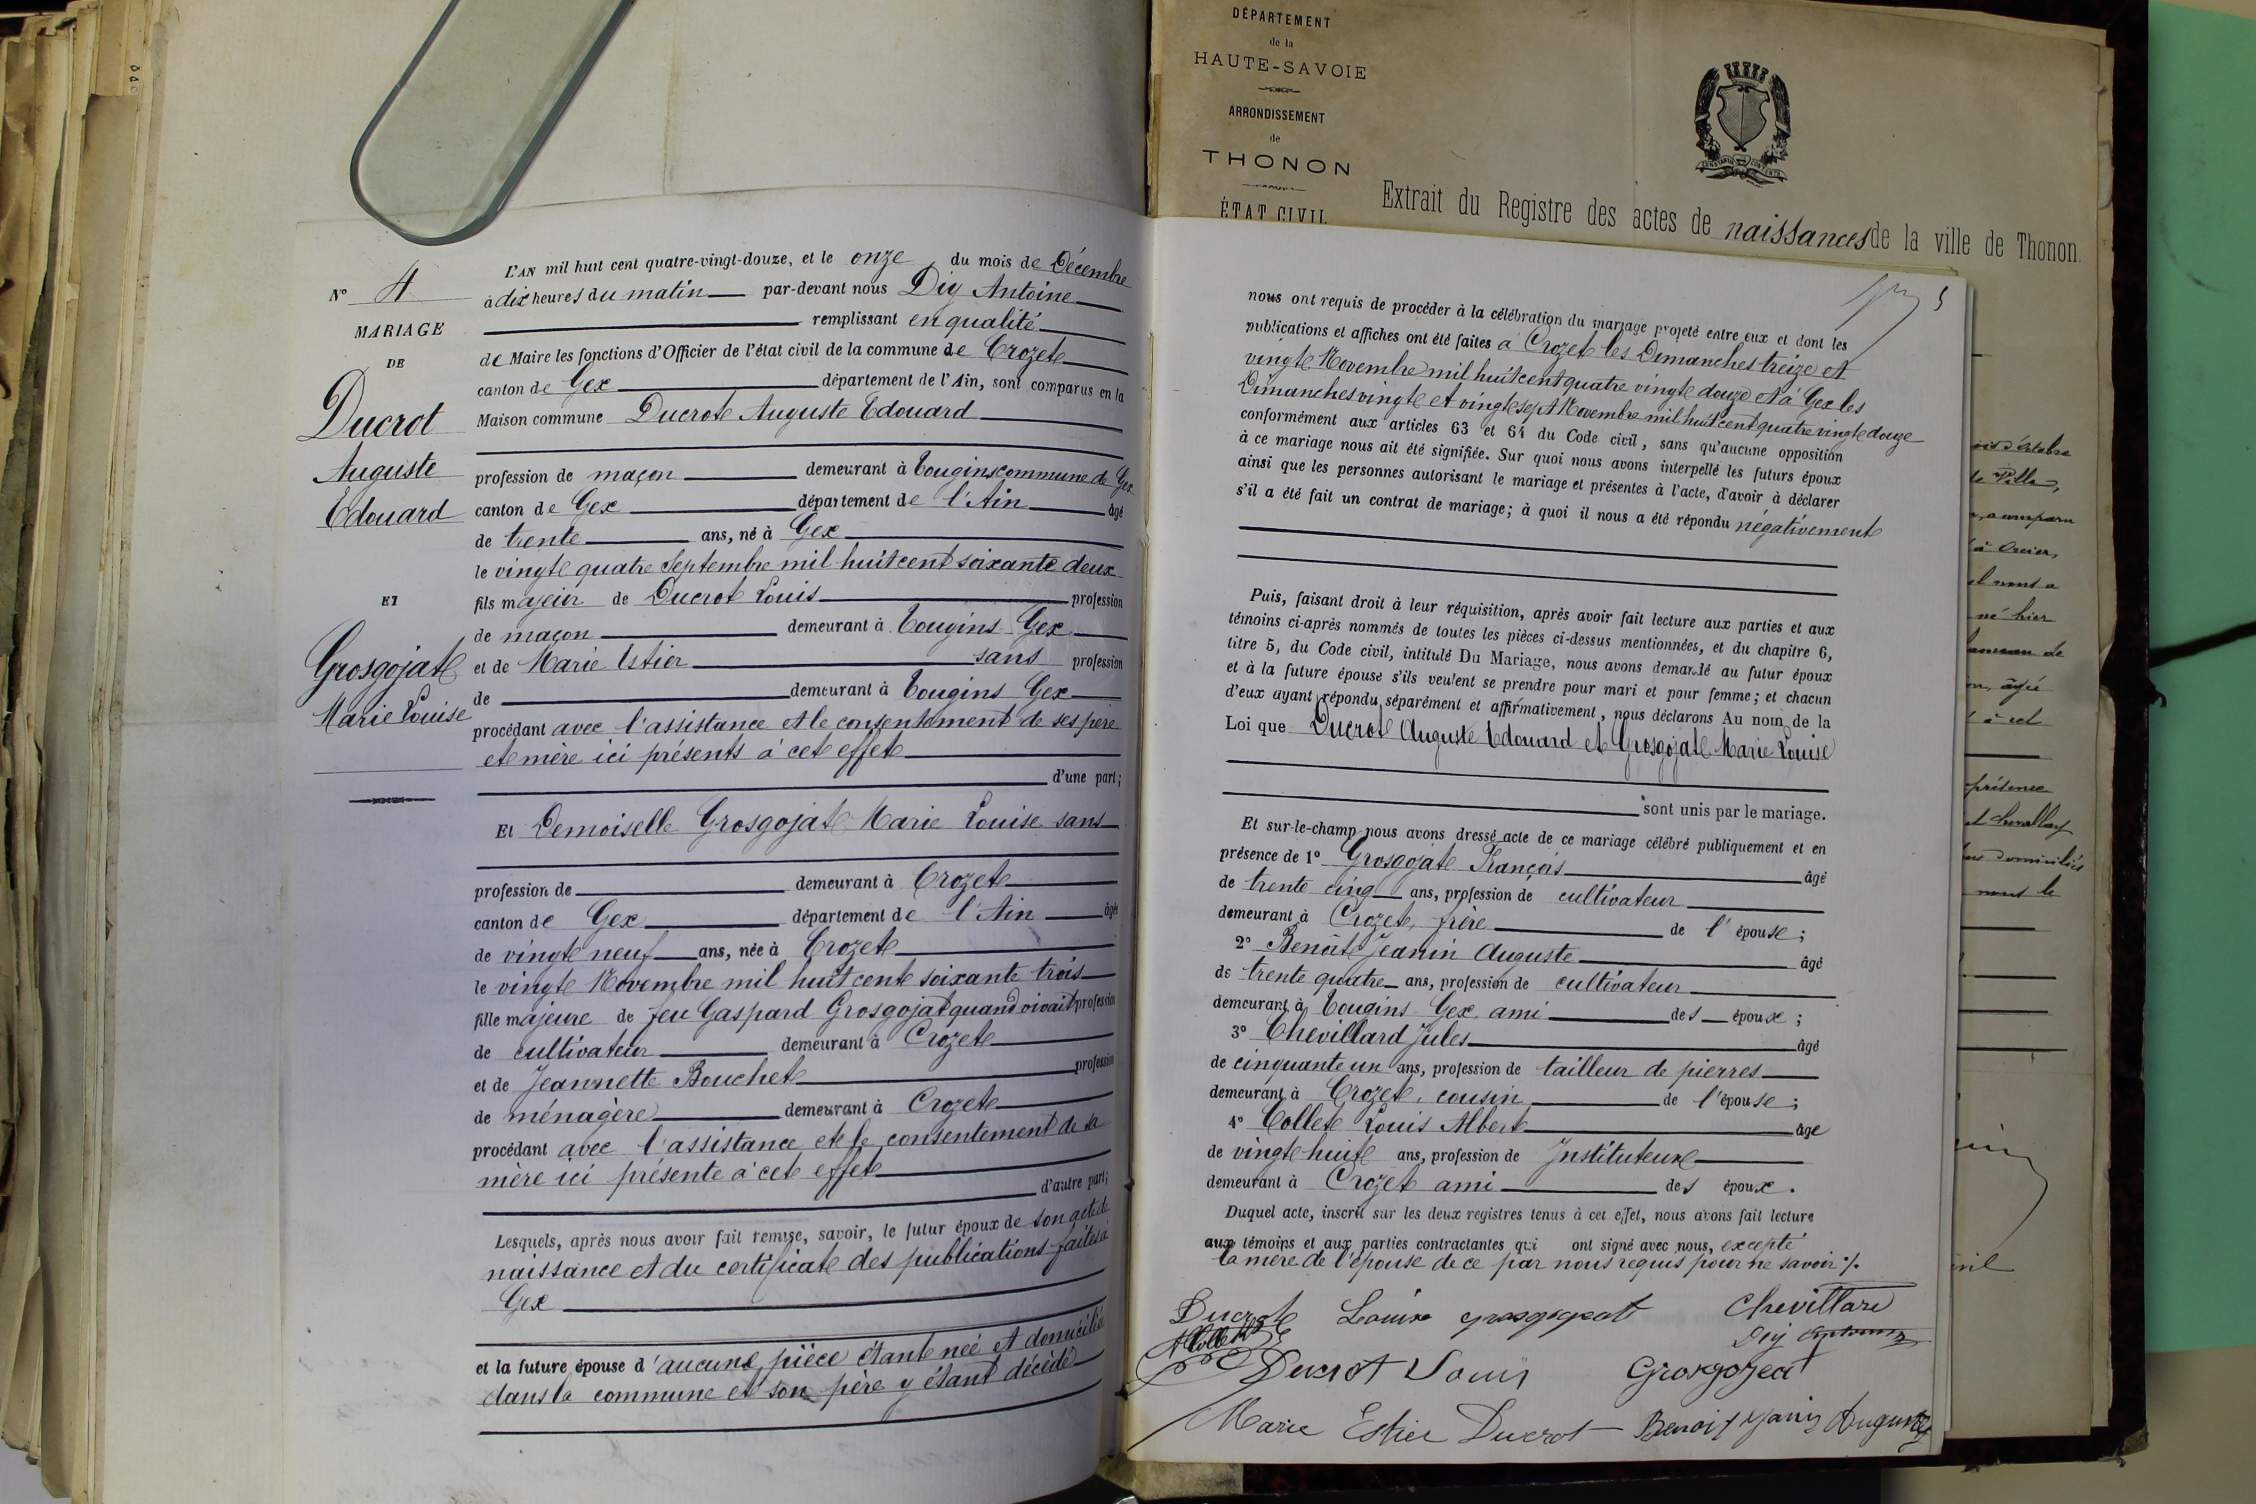 N° 4
MARIAGE
DE
Ducrot
Auguste
Edouard
ET
Grosgojat
Marie Louise
L'AN mil huit cent quatre-vingt-douze, et le onze du mois de Décembre
à dix heures du matin par-devant nous Diy Antoine
remplissant en qualité
de Maire les fonctions d'Officier de l'état civil de la commune de Crozet
canton de Gex département de l'Ain, sont comparus en la
Maison commune Ducrot Auguste Edouard
profession de maçon demeurant à Tougins commune de Gex
canton de Gex département de l'Ain âgé
de trente ans, né à Gex
le vingt quatre Septembre mil huit cent soixante deux
fils majeur de Ducrot Louis profession
de maçon demeurant à Tougins Gex
et de Marie Estier sans profession
de demeurant à Tougins Gex
procédant avec l'assistance et le consentement de ses père
et mère ici présents à cet effet
d'une part;
Et Demoiselle Grosgojat Marie Louise sans
profession de demeurant à Crozet
canton de Gex département de l'Ain âgée
de vingt neuf ans, née à Crozet
le vingt Novembre mil huit cent soixante trois
fille majeure de feu Gaspard Grosgojat quand vivait profession
de cultivateur demeurant à Crozet
et de Jeannette Bouchet profession
de ménagère demeurant à Crozet
procédant avec l'assistance et le consentement de sa
mère ici présente à cet effet
d'autre part;
Lesquels, après nous avoir fait remise, savoir, le futur époux de son acte de
naissance et du certificat des publications faites à
Gex
et la future épouse d'aucune pièce étant née et domiciliée
dans la commune et son père y étant décédé
DÉPARTEMENT
de la
HAUTE-SAVOIE
ARRONDISSEMENT
de
THONON
ÉTAT CIVIL
Extrait du Registre des actes de naissances de la ville de Thonon
5
nous ont requis de procéder à la célébration du mariage projeté entre eux et dont les
publications et affiches ont été faites à Crozet les Dimanches treize et
vingt Novembre mil huit cent quatre vingt douze et à Gex les
Dimanches vingt et vingt sept Novembre mil huit cent quatre vingt douze
conformément aux articles 63 et 64 du Code civil, sans qu'aucune opposition
à ce mariage nous ait été signifiée. Sur quoi nous avons interpellé les futurs époux
ainsi que les personnes autorisant le mariage et présentes à l'acte, d'avoir à déclarer
s'il a été fait un contrat de mariage; à quoi il nous a été répondu négativement
Puis, faisant droit à leur réquisition, après avoir fait lecture aux parties et aux
témoins ci-après nommés de toutes les pièces ci-dessus mentionnées, et du chapitre 6,
titre 5, du Code civil, intitulé Du Mariage, nous avons demandé au futur époux
et à la future épouse s'ils veulent se prendre pour mari et pour femme; et chacun
d'eux ayant répondu séparément et affirmativement, nous déclarons Au nom de la
Loi que Ducrot Auguste Edouard et Grosgojat Marie Louise
sont unis par le mariage.
Et sur-le-champ nous avons dressé acte de ce mariage célébré publiquement et en
présence de 1° Grosgojat François âgé
de trente cinq ans, profession de cultivateur
demeurant à Crozet, frère de l'épouse;
2° Benoit Jeanin Auguste âgé
de trente quatre ans, profession de cultivateur
demeurant à Tougins Gex, ami des époux;
3° Chevillard Jules âgé
de cinquante un ans, profession de tailleur de pierres
demeurant à Crozet, cousin de l'épouse;
4° Collet Louis Albert âgé
de vingt-huit ans, profession de Instituteur
demeurant à Crozet ami des époux.
Duquel acte, inscrit sur les deux registres tenus à cet effet, nous avons fait lecture
aux témoins et aux parties contractantes qui ont signé avec nous, excepté
la mère de l'épouse de ce par nous requis pour ne savoir ./.
Ducrot Louise grosgogeat Chevillard
Diy Antoine
Ducrot Louis Grosgojeat
Marie Estier Ducrot Benoit Janin Auguste